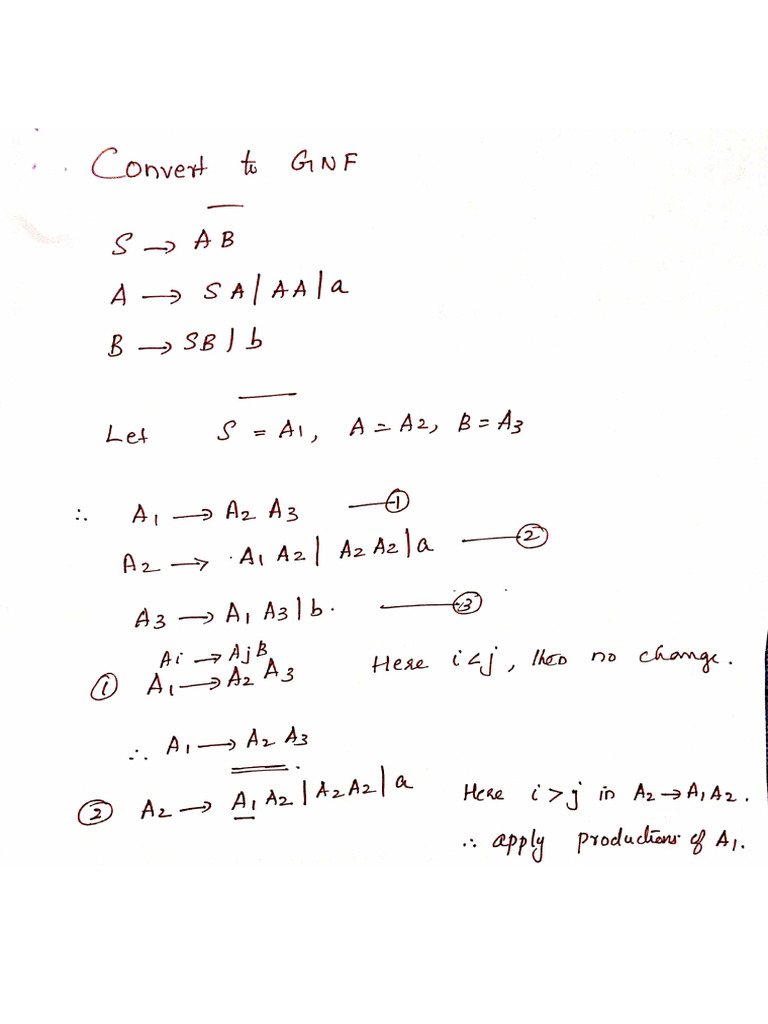 Convert to GNF
S → AB
A → SA|AA|a
B → SB|b
Let S = A1, A = A2, B = A3
∴ A1 → A2 A3 —①
A2 → A1 A2 | A2 A2|a —②
A3 → A1 A3|b. —③
Ai → AjB
① A1 → A2 A3 Here i<j, then no change.
∴ A1 → A2 A3
② A2 → A1 A2|A2A2|a Here i>j in A2→A1A2.
∴ apply productions of A1.